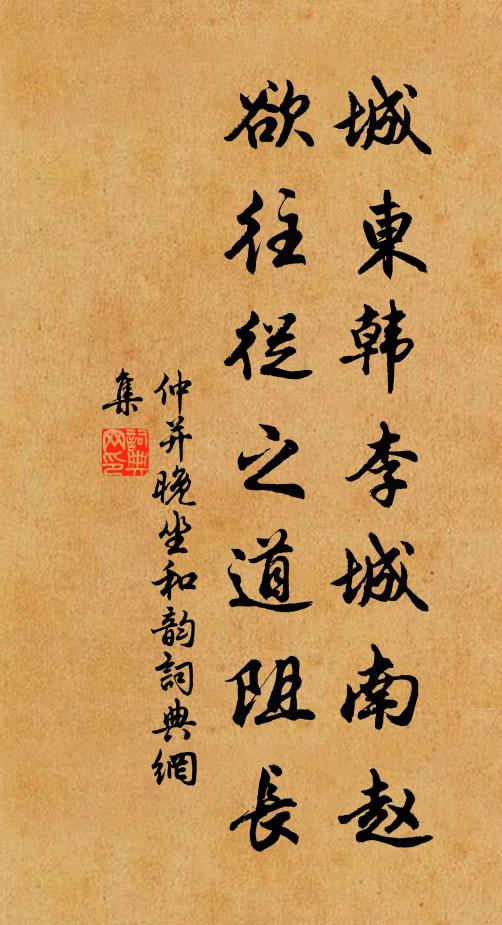 城東韩李城南赵
欲往從之道阻長
仲并晚坐和韵詞典網
集
詞典
网印